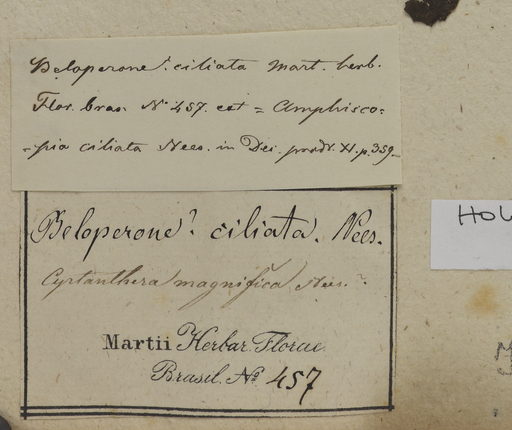 Beloperone? ciliata Mart. herb.
Flor. bras. N° 457. est = Amphisco=
=pia ciliata Nees. in Dec. prodr. XI. p. 359_
Beloperone? ciliata. Nees.
Cyrtanthera magnifica Nees.?
Martii Herbar. Florae
Brasil. No. 457
HOL